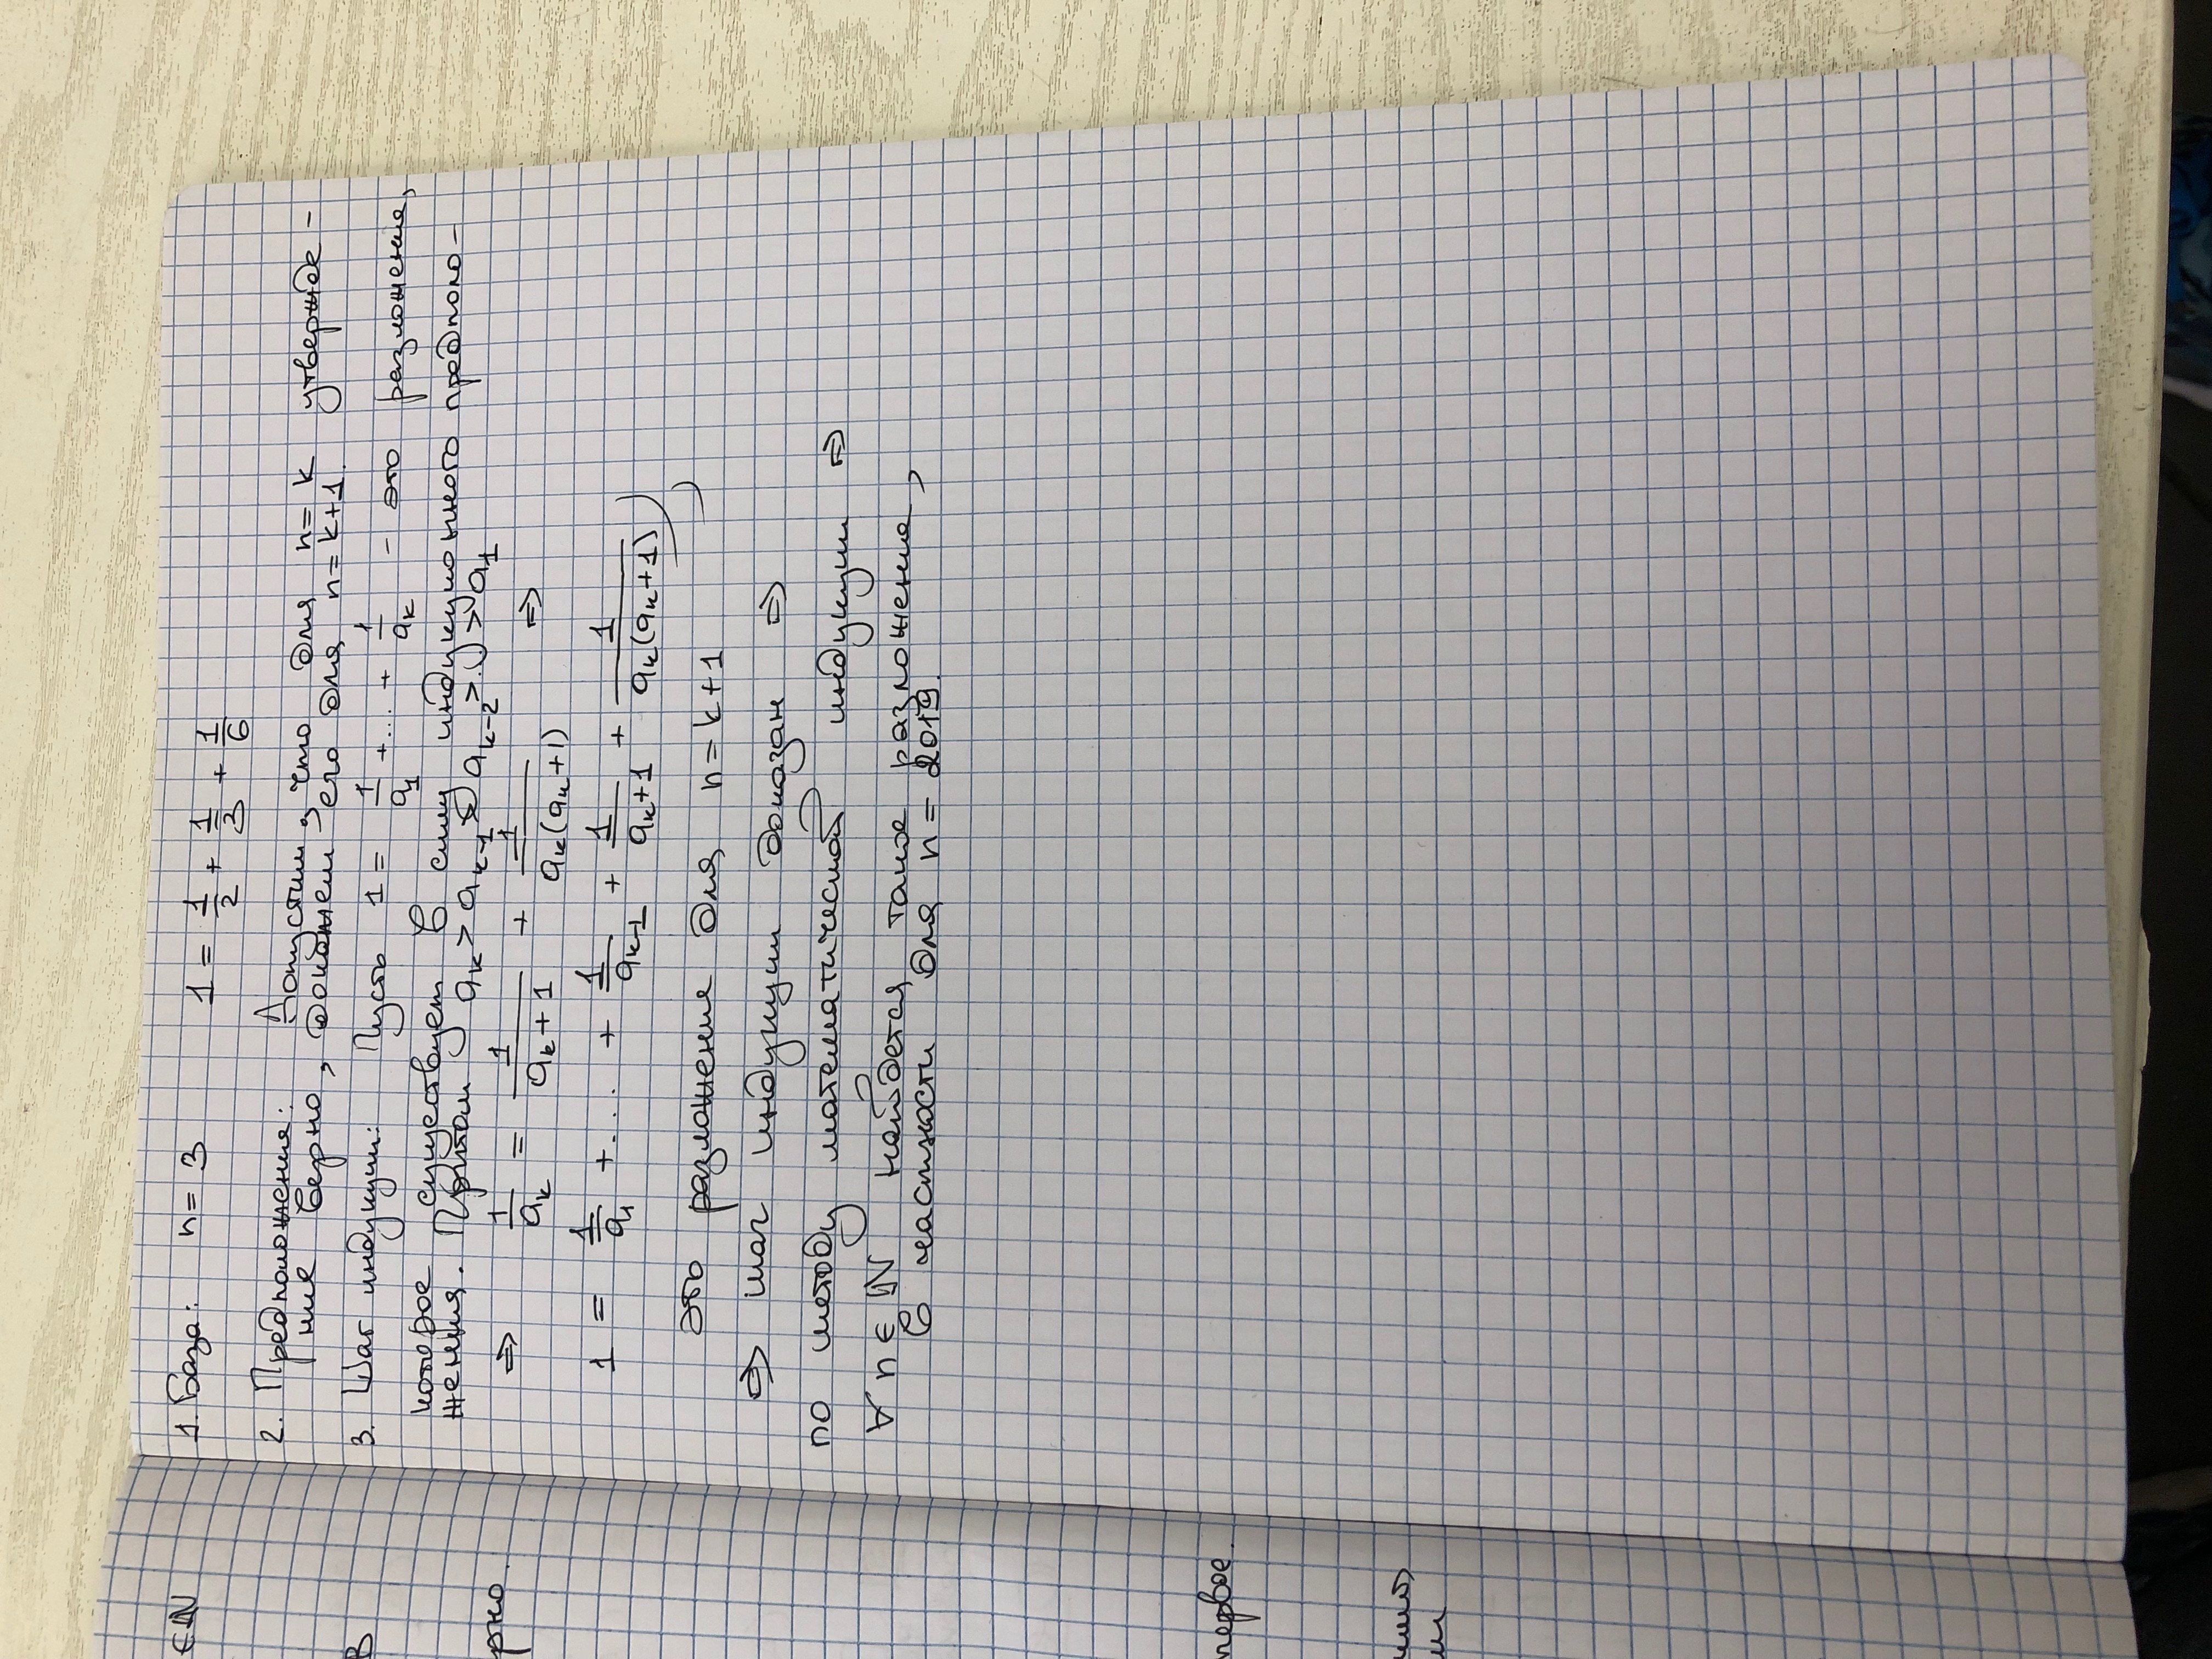 ∈ ℕ
в
рно.
первое.
1. База: n = 3 1 = 1/2 + 1/3 + 1/6
2. Предположение: Допустим, что для n = k утвержде-
ние верно, докажем его для n = k+1.
3. Шаг индукции: Пусть 1 = 1/a₁ + ... + 1/aₖ - это разложение,
которое существует в силу индукционного предполо-
жения. Притом aₖ > aₖ₋₁ > aₖ₋₂ > ... > a₁
⇒ 1/aₖ = 1/(aₖ+1) + 1/(aₖ(aₖ+1)) ⇒
1 = 1/a₁ + .... + 1/aₖ₋₁ + 1/(aₖ+1) + 1/(aₖ(aₖ+1)),
это разложение для n = k+1
⇒ шаг индукции доказан ⇒
по методу математической индукции ⇒
∀ n ∈ ℕ найдется такое разложение,
в частности для n = 2019.